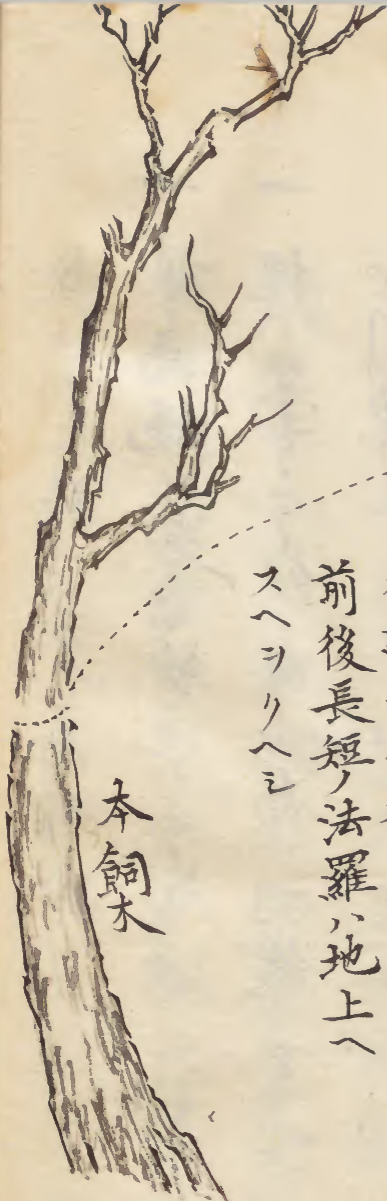 前後長短ノ法羅ハ地上ヘ
スヘヨリヘシ
本飼木